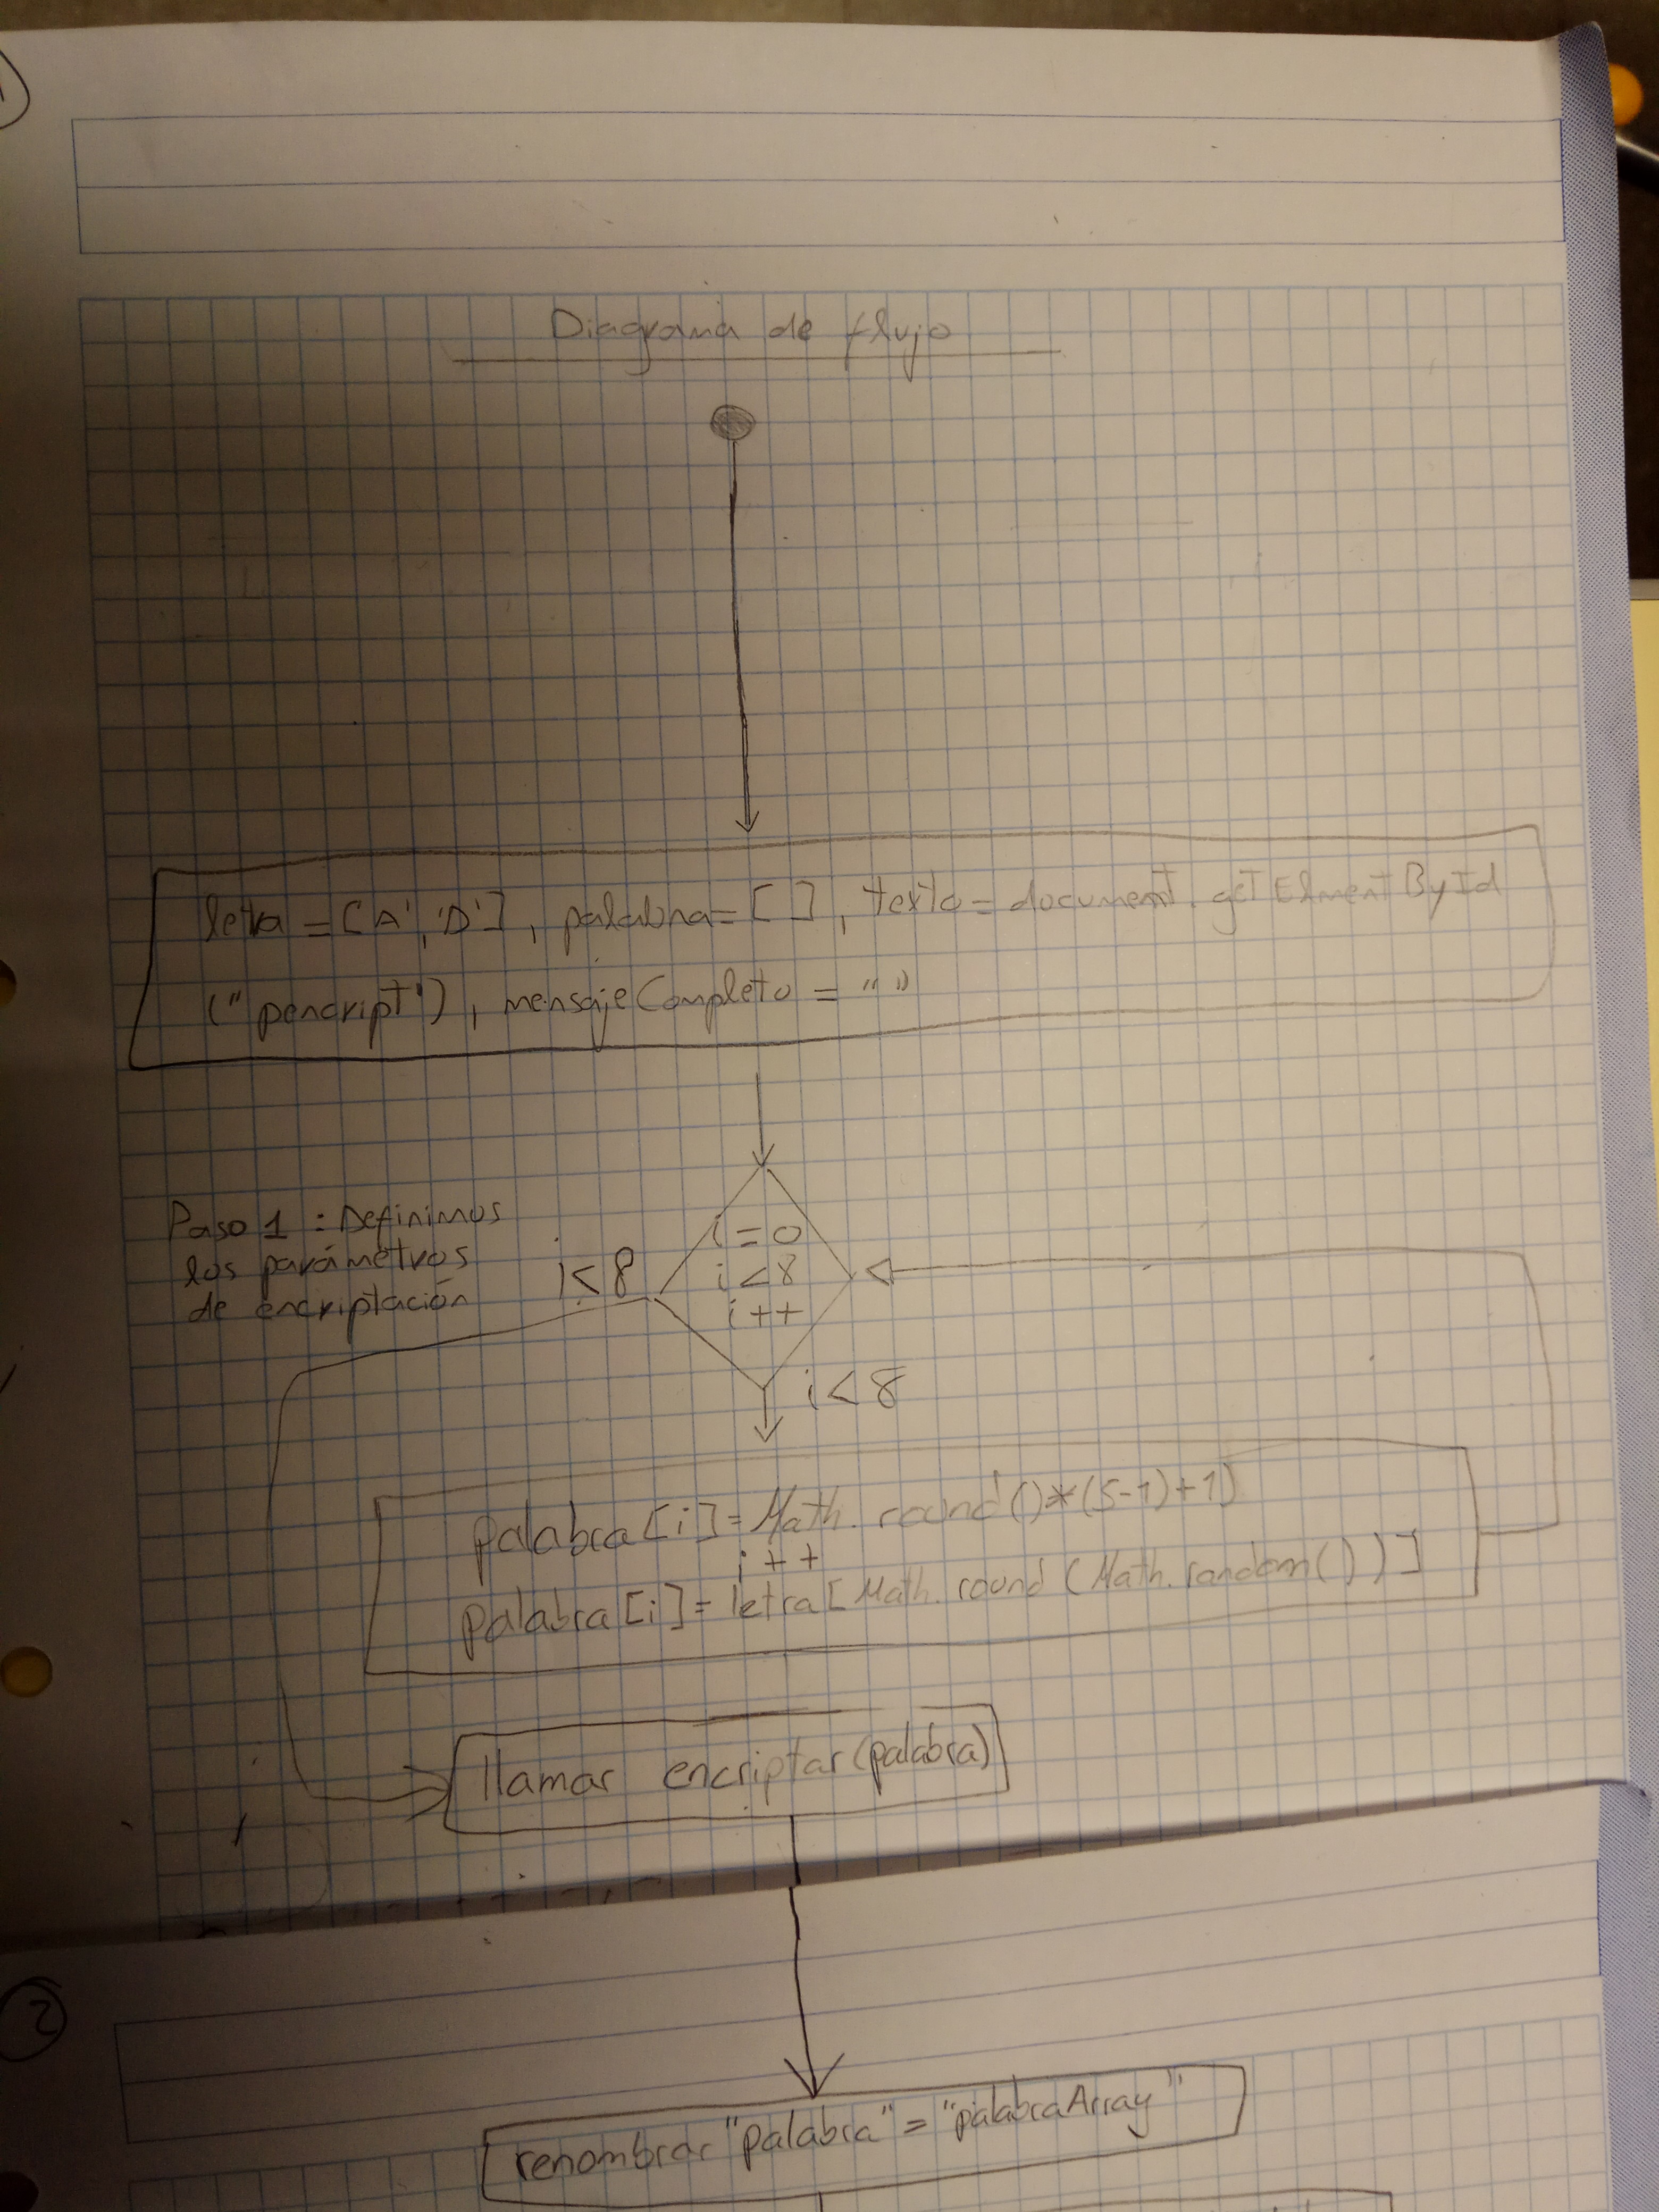 Diagrama de flujo
letra = ['A', 'D'], palabra = [ ], texto = document.getElmentById
("pencript"), mensajeCompleto = ""
Paso 1 : Definimos
los parámetros
de encriptación
i<8
i=0
i<8
i++
i<8
palabra[i]=Math.round()*(5-1)+1)
i++
palabra[i]= letra[Math.round(Math.random())]
llamar encriptar(palabra)
2
renombrar "palabra" = "palabraArray"